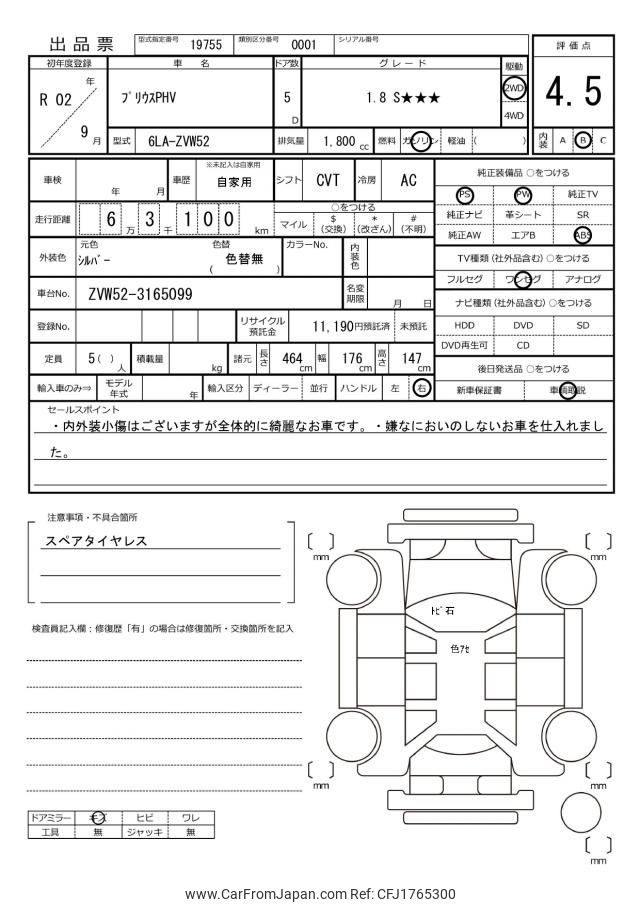 出品票
型式指定番号 19755 類別区分番号 0001 シリアル番号
評価点
4.5
内装 A B C
初年度登録 車名 ドア数 グレード 駆動
R 02 年 9 月
ﾌﾟﾘｳｽPHV
5 D
1.8 S★★★
2WD
4WD
型式 6LA-ZVW52 排気量 1,800 cc 燃料 ガソリン 軽油 ( )
車検 年 月 車歴 ※未記入は自家用 自家用 シフト CVT 冷房 AC
走行距離 6 万 3 千 1 0 0 km
○をつける
マイル $ (交換) * (改ざん) # (不明)
外装色 元色 ｼﾙﾊﾞｰ 色替 ( 色替無 ) カラーNo. 内装色
車台No. ZVW52-3165099 名変期限 月 日
登録No. リサイクル預託金 11,190円預託済 未預託
定員 5( ) 人 積載量 kg 諸元 長さ 464 cm 幅 176 cm 高さ 147 cm
輸入車のみ⇒ モデル年式 年 輸入区分 ディーラー 並行 ハンドル 左 右
純正装備品 ○をつける
PS PW 純正TV
純正ナビ 革シート SR
純正AW エアB ABS
TV種類 (社外品含む) ○をつける
フルセグ ワンセグ アナログ
ナビ種類 (社外品含む) ○をつける
HDD DVD SD
DVD再生可 CD
後日発送品 ○をつける
新車保証書 車輌取説
セールスポイント
・内外装小傷はございますが全体的に綺麗なお車です。・嫌なにおいのしないお車を仕入れまし
た。
注意事項・不具合箇所
スペアタイヤレス
検査員記入欄：修復歴「有」の場合は修復箇所・交換箇所を記入
〔 〕 mm
〔 〕 mm
ﾄﾋﾞ石
色ｱｾ
〔 〕 mm
〔 〕 mm
〔 〕 mm
ドアミラー キズ ヒビ ワレ
工具 無 ジャッキ 無
www.CarFromJapan.com Ref: CFJ1765300